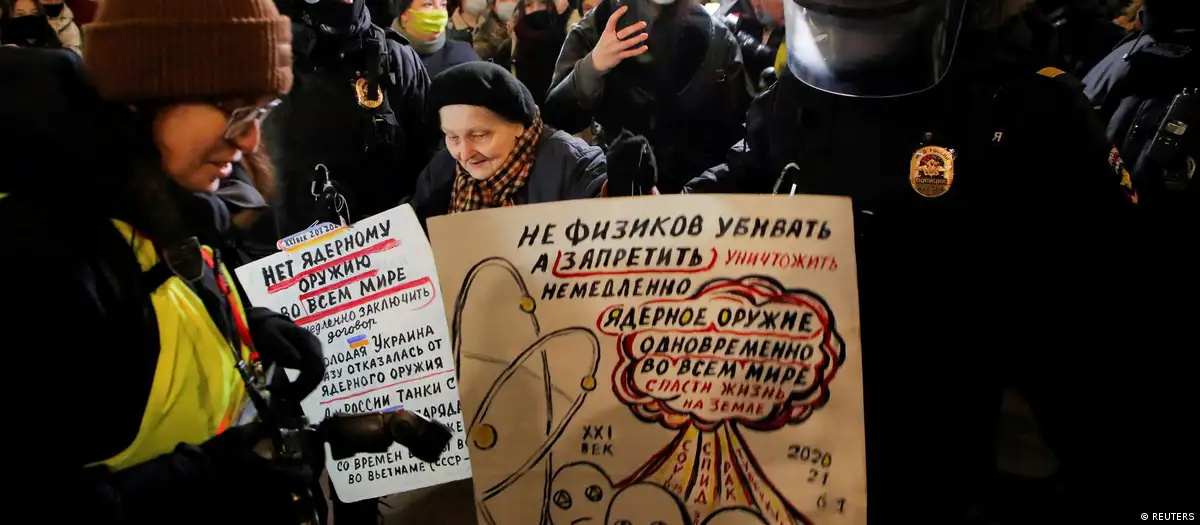 XXI ВЕК 2.03.202
НЕТ ЯДЕРНОМУ
ОРУЖИЮ
ВО ВСЕМ МИРЕ
ЗАКЛЮЧИТЬ
ДОГОВОР
УКРАИНА
ОТКАЗАЛАСЬ ОТ
ЯДЕРНОГО ОРУЖИЯ
РОССИИ ТАНКИ С
СО ВРЕМЕН
ВО ВЬЕТНАМЕ (СССР-
НЕ ФИЗИКОВ УБИВАТЬ
А ЗАПРЕТИТЬ УНИЧТОЖИТЬ
НЕМЕДЛЕННО
ЯДЕРНОЕ ОРУЖИЕ
ОДНОВРЕМЕННО
ВО ВСЕМ МИРЕ
СПАСТИ ЖИЗНЬ
НА ЗЕМЛЕ
XXI
ВЕК
СПИД
РАК
2020
21
ПОЛИЦИЯ
Я
© REUTERS